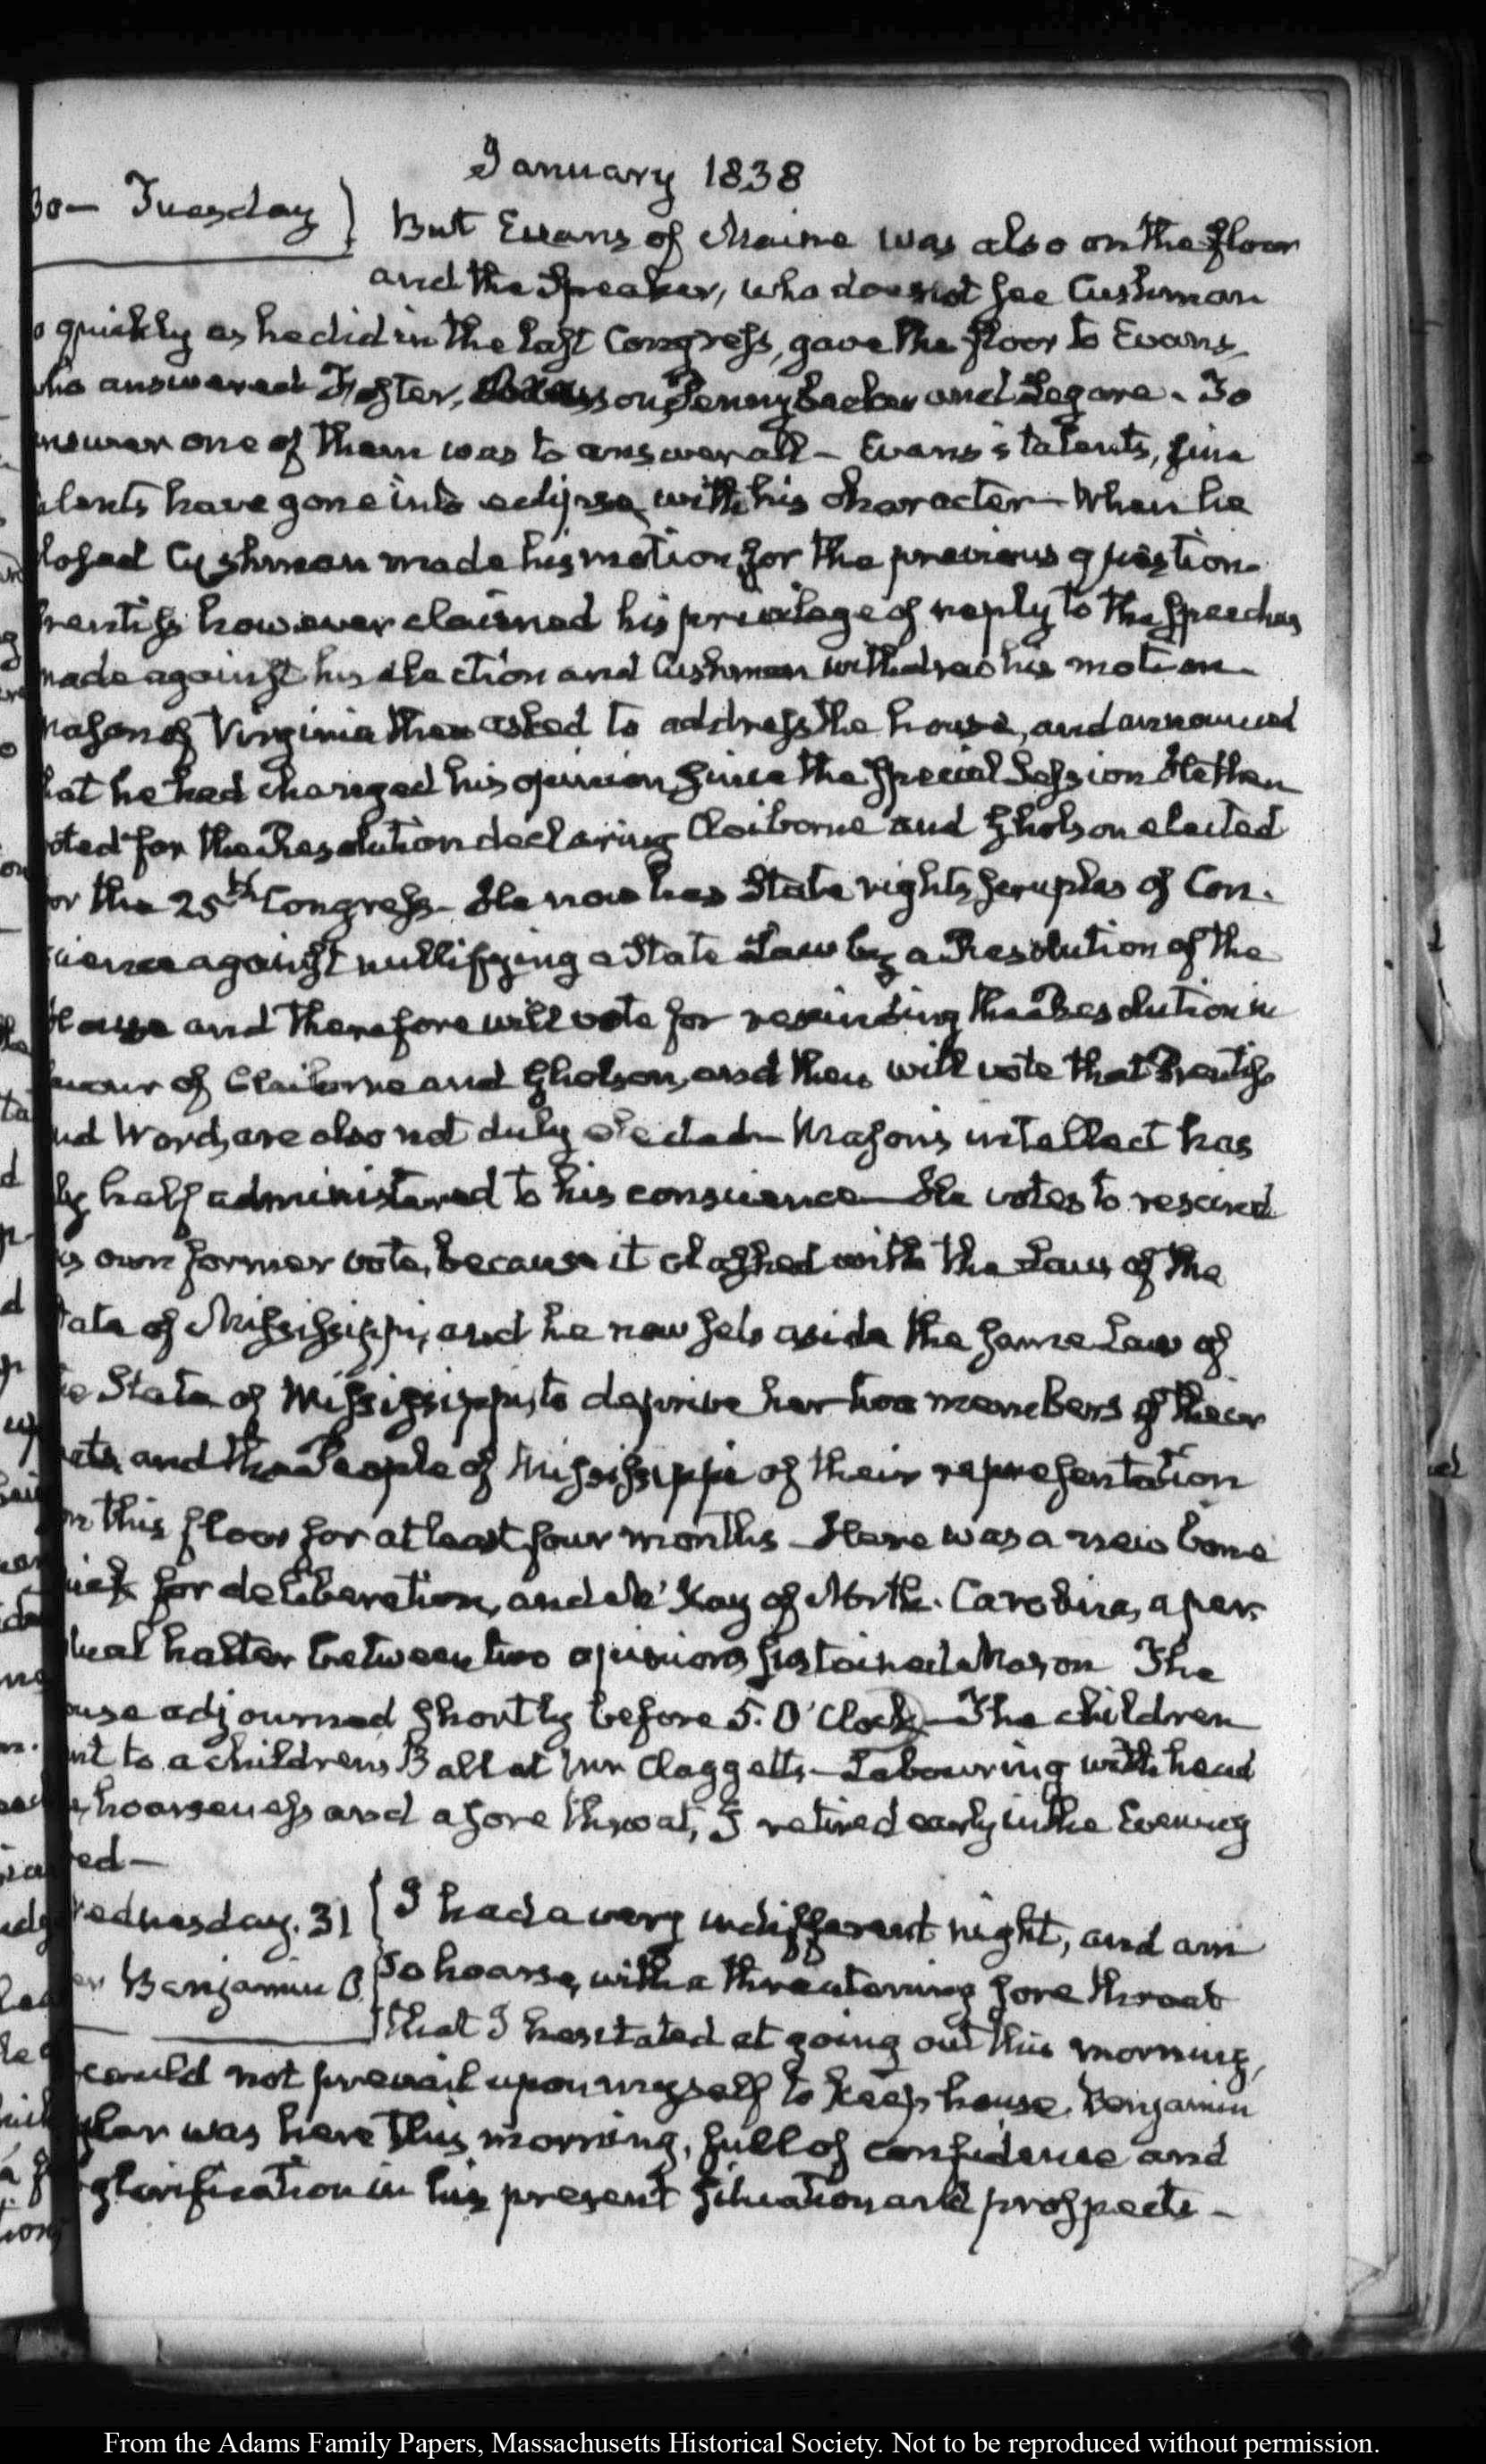 January 1838
30 — Tuesday } But Evans of Maine was also on the floor
and the Speaker, who does not see Cushman
o quickly as he did in the last Congress, gave the floor to Evans,
who answered Foster, Pennybacker and Legare. To
nswer one of them was to answer all — Evans's talents, fine
alents have gone into eclipse with his character — When he
losed Cushman made his motion for the previous question.
Prentiss however claimed his privilege of reply to the speeches
made against his election and Cushman withdrew his motion.
Mason of Virginia then asked to address the house, and announced
hat he had changed his opinion since the special Session He then
oted for the Resolution declaring Claiborne and Gholson elected
for the 25th Congress — He now has State rights scruples of Con-
science against nullifying a State Law by a Resolution of the
House and therefore will vote for rescinding the Resolution in
favour of Claiborne and Gholson, and then will vote that Prentiss
nd Word, are also not duly elected — Mason's intellect has
by half administered to his conscience — He votes to rescind
is own former vote, because it clashed with the Law of the
tate of Mississippi, and he now sets aside the same Law of
he State of Mississippi, to deprive her two members of their
eats and the People of Mississippi of their representation
on this floor for at least four months — Here was a new bone
for deliberation, and Mc'Kay of North Carolina, a per-
tual halter between two opinions sustained Mason The
ouse adjourned shortly before 5. O'Clock — The children
nt to a children's Ball at Mr Claggett's — Labouring with head
e, hoarseness and a sore throat, I retired early in the Evening
ed —
Wednesday. 31 { I had a very indifferent night, and am
er Benjamin O. so hoarse, with a threatening sore throat
that I hesitated at going out this morning,
could not prevail upon myself to keep house. Benjamin
yler was here this morning, full of confidence and
glorification in his present situation and prospects —
From the Adams Family Papers, Massachusetts Historical Society. Not to be reproduced without permission.